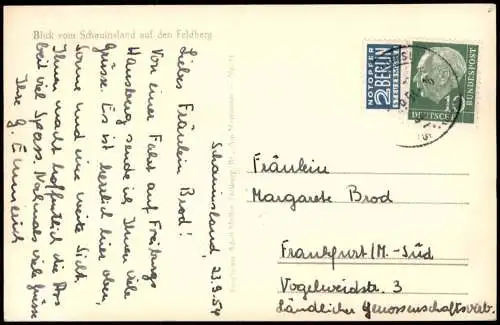 Blick vom Schauinsland auf den Feldberg
Schauinsland, 23.9.54
Liebes Fräulein Brod!
Von einer Fahrt auf Freiburgs
Hausberg sende ich Ihnen viele
Grüsse. Es ist herrlich hier oben,
Sonne und eine weite Sicht.
Ihnen macht hoffentlich die Ar=
beit viel Spass. Nochmals viele Grüsse
Ihre G. Emmerich
NOTOPFER
2 BERLIN
STEUERMARKE
10
DEUTSCHE
BUNDESPOST
Fräulein
Margarete Brod
Frankfurt/M.-Süd
Vogelweidstr. 3
Ländlicher Genossenschaftsverb.